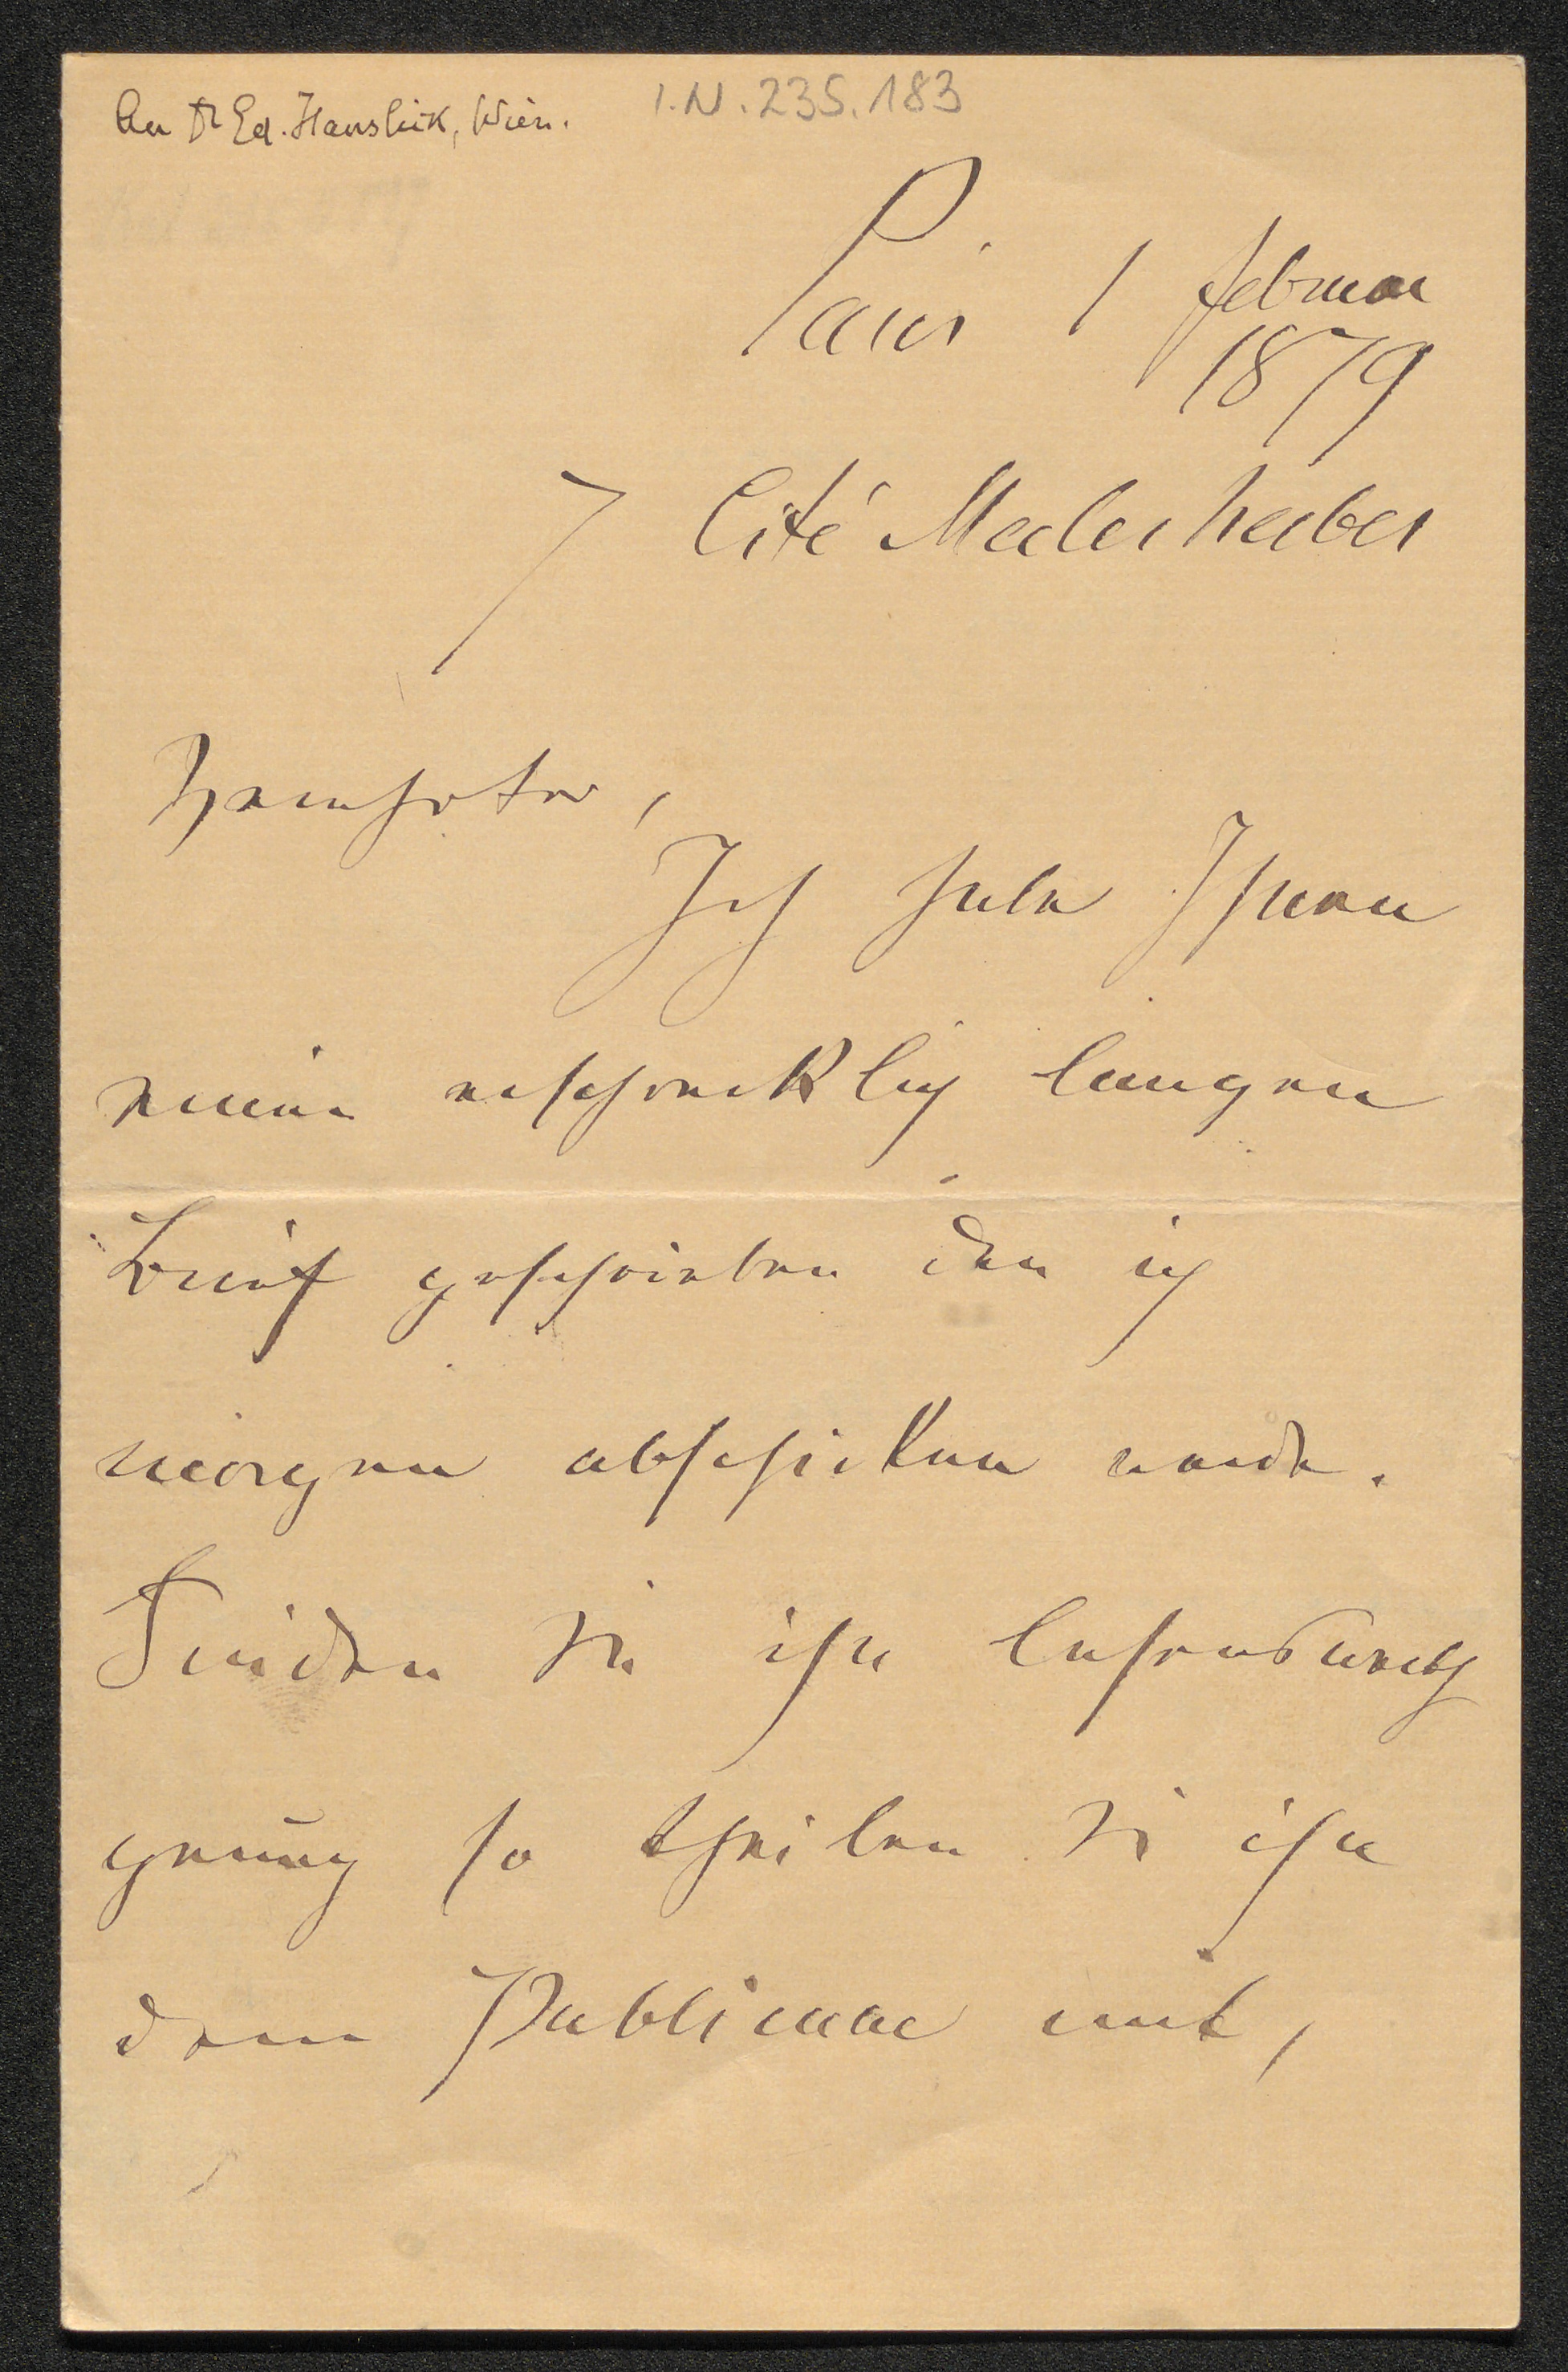 An Dr Ed. Hanslick, Wien.
I.N. 235.183
Paris 1 februar
1879
7 Cité Malesherbes
Verehrter,
Ich habe Ihnen
einen erschrecklich langen
Brief geschrieben den ich
morgen abschicken werde.
Finden Sie ihn lesenswerth
genug so theilen Sie ihn
dem Publicum mit,